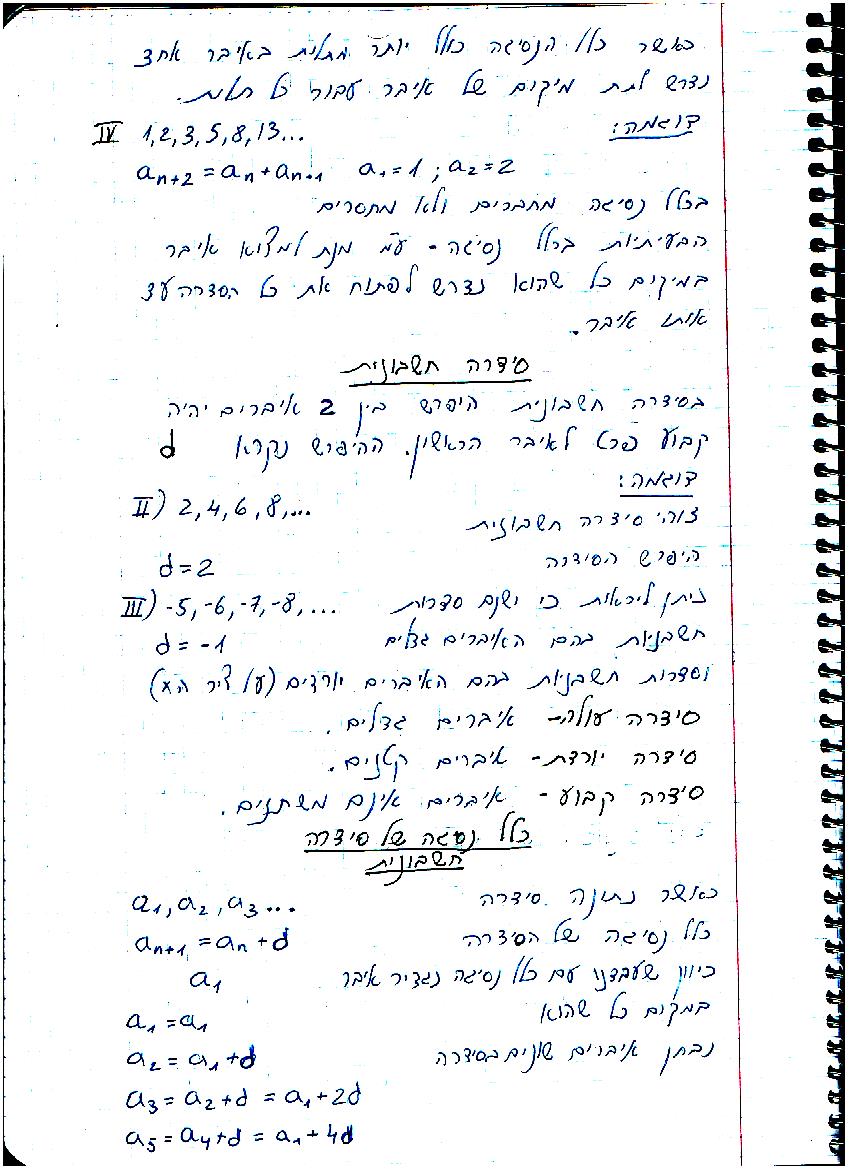 כאשר כלל הנסיגה כולל יותר מתלות באיבר אחד
נדרש לתת מיקום של איבר עבור כל תלות.
דוגמה:
IV 1,2,3,5,8,13...
aₙ₊₂ = aₙ + aₙ₊₁ a₁ = 1 ; a₂ = 2
בכלל נסיגה מחברים ולא מחסרים
הבעיתיות בכלל נסיגה - ע"מ מנת למצוא איבר
במיקום כל שהוא נדרש לפתוח את כל הסדרה עד
אותו איבר.
סידרה חשבונית
בסידרה חשבונית היפרש בין 2 איברים יהיה
קבוע פרט לאיבר הראשון. ההיפרש נקרא d
דוגמה:
II) 2,4,6,8,...
זוהי סידרה חשבונית
היפרש הסידרה d = 2
III) -5,-6,-7,-8,... ניתן ליראות כי ישנם סדרות
d = -1 חשבוניות בהם האיברים גדלים
וסדרות חשבוניות בהם האיברים יורדים (על ציר ה x)
סידרה עולה - איברים גדלים.
סידרה יורדת - איברים קטנים.
סידרה קבוע - איברים אינם משתנים.
כלל נסיגה של סידרה
חשבונית
כאשר נתונה סידרה a₁, a₂, a₃...
כלל נסיגה של הסידרה aₙ₊₁ = aₙ + d
כיוון שעבדנו עם כלל נסיגה נגדיר איבר a₁
במקום כל שהוא
a₁ = a₁
נבחן איברים שונים בסידרה a₂ = a₁ + d
a₃ = a₂ + d = a₁ + 2d
a₅ = a₄ + d = a₁ + 4d